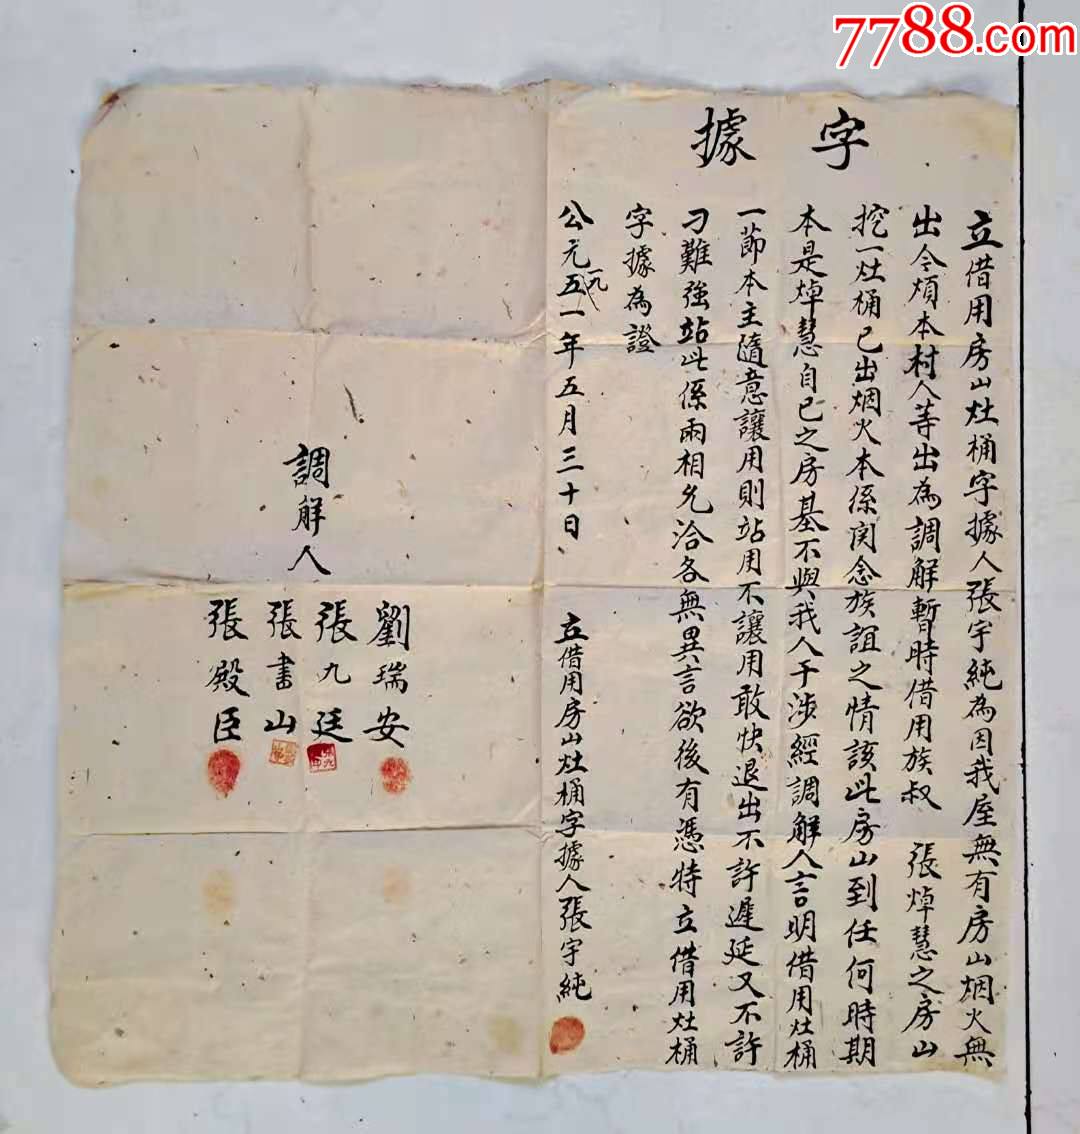 7788.com
字據
立借用房山灶桶字據人張宇純為因我座無有房山烟火無
出今煩本村人等出為調解暫時借用族叔 張焯慧之房山
挖一灶桶已出烟火本係関念族誼之情該此房山到任何時期
本是焯慧自已之房基不與我人干涉經調解人言明借用灶桶
一節本主隨意讓用則站用不讓用敢快退出不許遲延又不許
刁難強站此係兩相允洽各無異言欲後有憑特立借用灶桶
字據為證
公元一九五一年五月三十日 立借用房山灶桶字據人張宇純
調解人
劉瑞安
張九廷
張書山
張殿臣